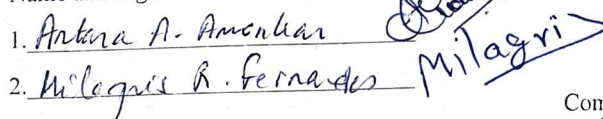 1. Antara A. Amonkar
2. Milagris R. Fernandes Milagri
Com